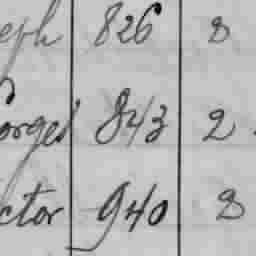 eph 826 8
orges 843 2
ctor 940 8